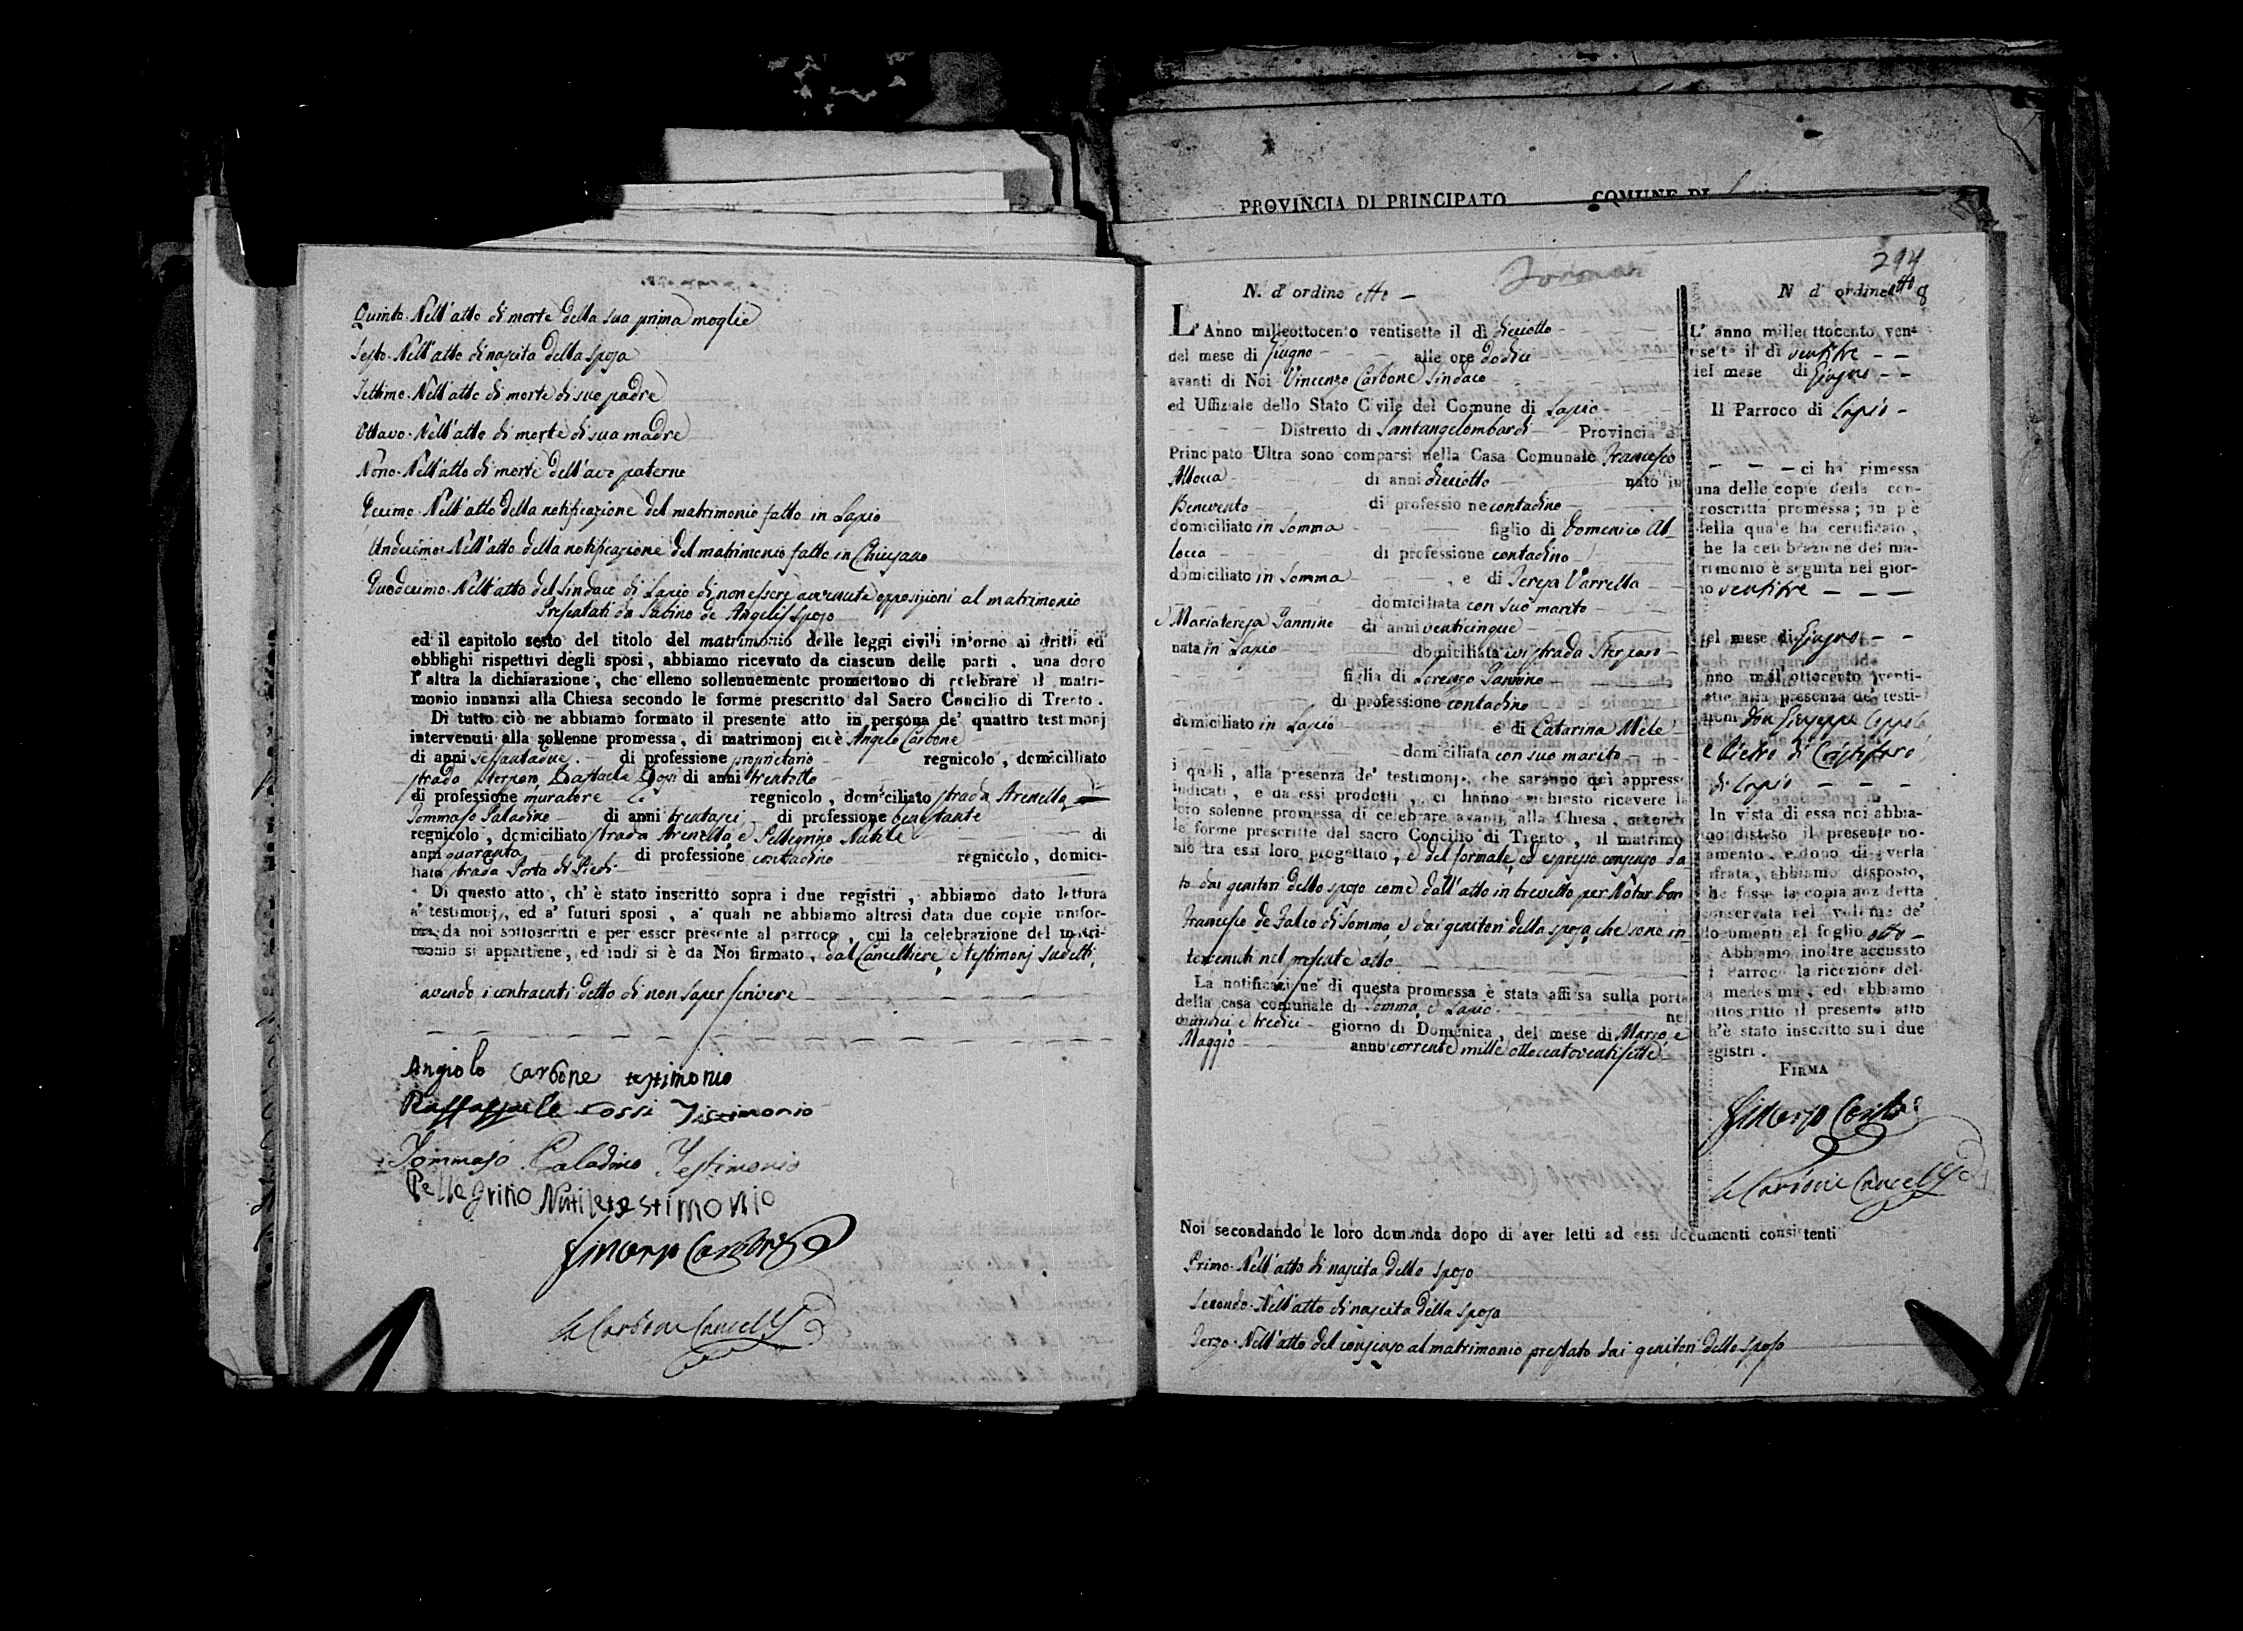 PROVINCIA DI PRINCIPATO COMUNE DI
Quinto. Nell'atto di morte della sua prima moglie
Sesto. Nell'atto di nascita della sposa
Settimo. Nell'atto di morte di suo padre
Ottavo. Nell'atto di morte di sua madre
Nono. Nell'atto di morte dell'avo paterno
Decimo. Nell'atto della notificazione del matrimonio fatto in Lapio
Undecimo. Nell'atto della notificazione del matrimonio fatto in Chiusano
Duodecimo. Nell'atto del Sindaco di Lapio di non essere avvenute opposizioni al matrimonio
Presentati da Sabino de Angelis sposo
ed il capitolo sesto del titolo del matrimonio delle leggi civili in'orno ai dritti ed
obblighi rispettivi degli sposi, abbiamo ricevuto da ciascun delle parti, una dopo
l'altra la dichiarazione, che elleno sollennemente promettono di celebrare il matri-
monio innanzi alla Chiesa secondo le forme prescritto dal Sacro Concilio di Trento.
Di tutto ciò ne abbiamo formato il presente atto in persona de' quattro testimonj
intervenuti alla sollenne promessa, di matrimonj cioè Angelo Carbone
di anni sessantadue. di professione proprietario regnicolo, domicilliato
strada Sterparo, Raffaele Rossi di anni trentotto
di professione muratore regnicolo, domiciliato strada Arenella
Tommaso Paladino di anni trentasei di professione benestante
regnicolo, domiciliato strada Arenella, e Pellegrino Nutile di
anni quaranta di professione contadino regnicolo, domici-
liato strada Porta di Piedi
Di questo atto, ch'è stato inscritto sopra i due registri, abbiamo dato lettura
a' testimonj, ed a' futuri sposi, a' quali ne abbiamo altresì data due copie unifor-
mi, da noi sottoscritti e per esser presente al parroco, cui la celebrazione del matri-
monio si appartiene, ed indi si è da Noi firmato, dal Cancelliere, e testimonj sudetti,
avendo i contraenti detto di non saper scrivere
Angiolo Carbone testimonio
Raffaele rossi Testimonio
Tommaso Paladino Testimonio
Pellegrino Nutile testimonio
Vincenzo Carbone
Carbone Cancell.
294
N. d'ordine otto
L'Anno milleottocento ventisette il dì diciotto
del mese di Giugno alle ore dodici
avanti di Noi Vincenzo Carbone Sindaco
ed Uffiziale dello Stato Civile del Comune di Lapio
Distretto di Santangelombardi Provincia di
Principato Ultra sono comparsi nella Casa Comunale Francesco
Allocca di anni diciotto nato in
Benevento di professione contadino
domiciliato in Somma figlio di Domenico Al-
locca di professione contadino
domiciliato in Somma, e di Teresa Varrella
domiciliata con suo marito
e Mariateresa Iannino di anni venticinque
nata in Lapio domiciliata ivi strada Sterparo
figlia di Lorenzo Iannino
di professione contadino
domiciliato in Lapio e di Catarina Mele
domiciliata con suo marito
i quali, alla presenza de' testimonj, che saranno quì appresso
indicati, e da essi prodotti, ci hanno richiesto ricevere la
loro solenne promessa di celebrare avanti alla Chiesa, secondo
le forme prescritte dal sacro Concilio di Trento, il matrimo
nio tra essi loro progettato, e del formale, ed espresso consenso da
to dai genitori dello sposo come dall'atto in brevetto per Notar Don
Francesco de Falco di Somma, e dai genitori della sposa, che sono in-
tervenuti nel presente atto
La notificazione di questa promessa è stata affissa sulla porta
della casa comunale di Somma, e Lapio nel
giorno di Domenica, del mese di Marzo, e
Maggio anno corrente mille ottocentoventisette
N d'ordine otto 8
L'anno milleottocento ven-
tisette il dì ventitre
del mese di Giugno
Il Parroco di Lapio
ci ha rimessa
una delle copie della con-
troscritta promessa; in piè
della quale ha certificato,
che la celebrazione del ma-
trimonio è seguita nel gior-
no ventitre
del mese di Giugno
anno milleottocento venti-
sette alla presenza de' testi-
monj Don Giuseppe
e Pietro di
di Lapio
In vista di essa noi abbia-
mo disteso il presente no-
tamento, e dopo di averla
cifrata, abbiamo disposto,
che fosse la copia anzidetta
conservata nel volume de'
documenti al foglio otto
Abbiamo inoltre accusato
al Parroco la ricezione del-
la medesima, ed abbiamo
sottoscritto il presente atto
ch'è stato inscritto sui due
registri.
FIRMA
Vincenzo Carbone
Carbone Cancell.
Noi secondando le loro domanda dopo di aver letti ad essi documenti consistenti
Primo. Nell'atto di nascita dello sposo
Secondo. Nell'atto di nascita della sposa
Terzo. Nell'atto del consenso al matrimonio prestato dai genitori dello sposo